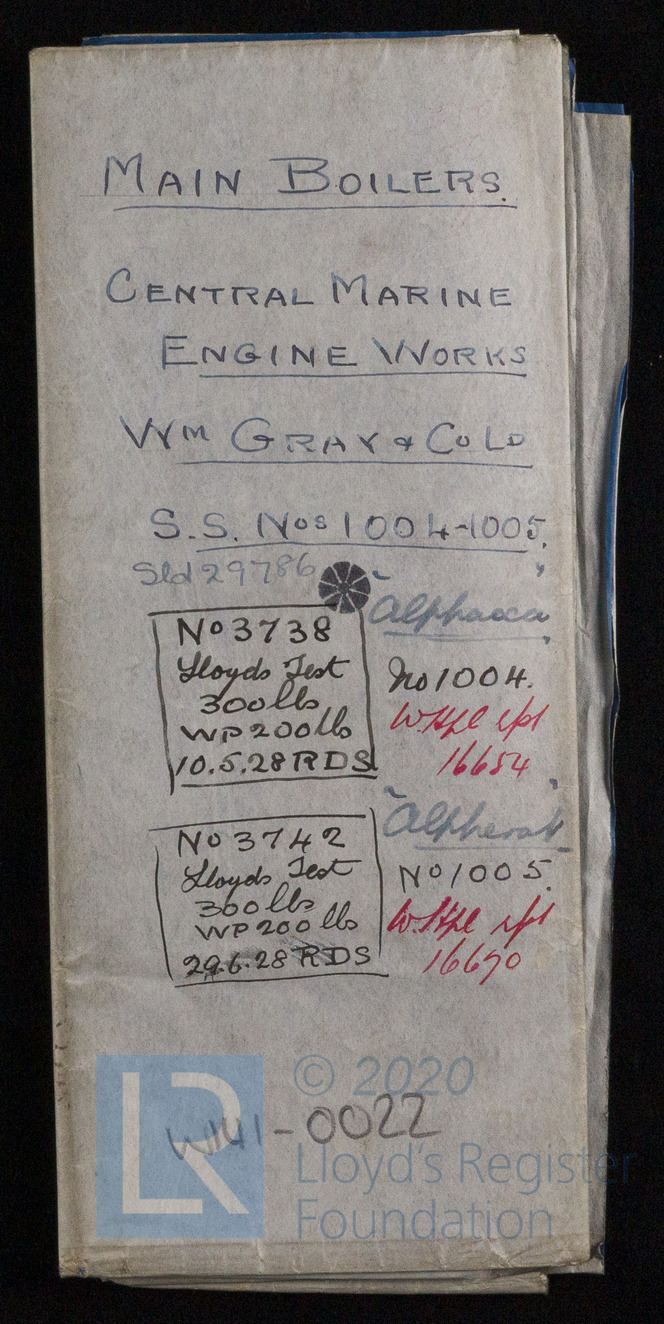 MAIN BOILERS.
CENTRAL MARINE
ENGINE WORKS
WM GRAY & CO LD
S.S. Nos 1004-1005.
Sld 29786
"Alphacca"
No 3738
Lloyds Test
300 lbs
WP 200 lbs
10.5.28 RDS
No 1004.
W.Hpl rpt
16654
"Alpherat"
No 3742
Lloyds Test
300 lbs
WP 200 lbs
29.6.28 RDS
No 1005.
W.Hpl rpt
16670
W141-0022
LR
© 2020
Lloyd's Register
Foundation